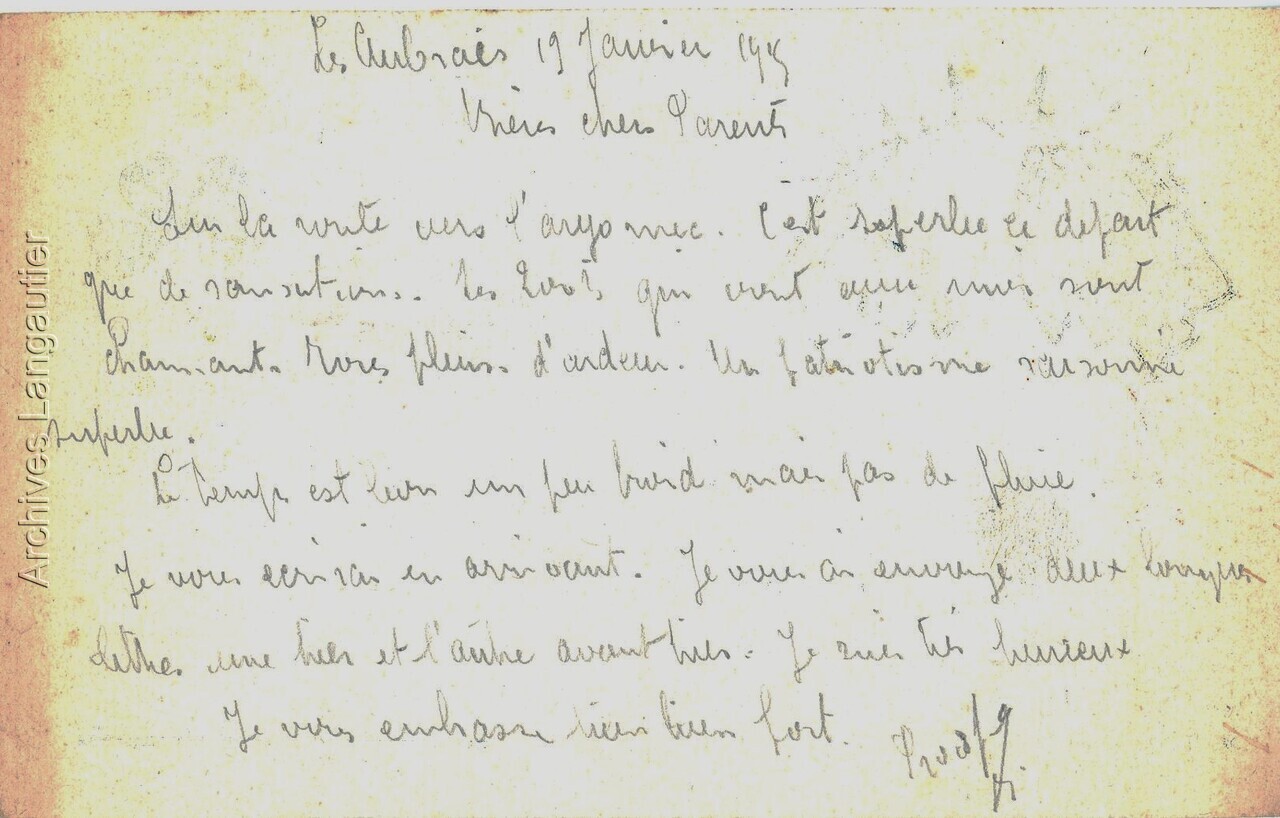 Les Aubrais 19 Janvier 1915
Très chers Parents
Sur la route vers l'argonne. C'est superbe ce départ
que de sensations. Les qui vont avec moi sont
Charmants tous pleins d'ardeur. Un patriotisme raisonné
superbe.
Le temps est bon un peu froid mais pas de pluie.
Je vous écrirai en arrivant. Je vous ai envoyé deux longues
lettres une hier et l'autre avant hier. Je suis très heureux
Je vous embrasse bien bien fort.
Archives Langautier